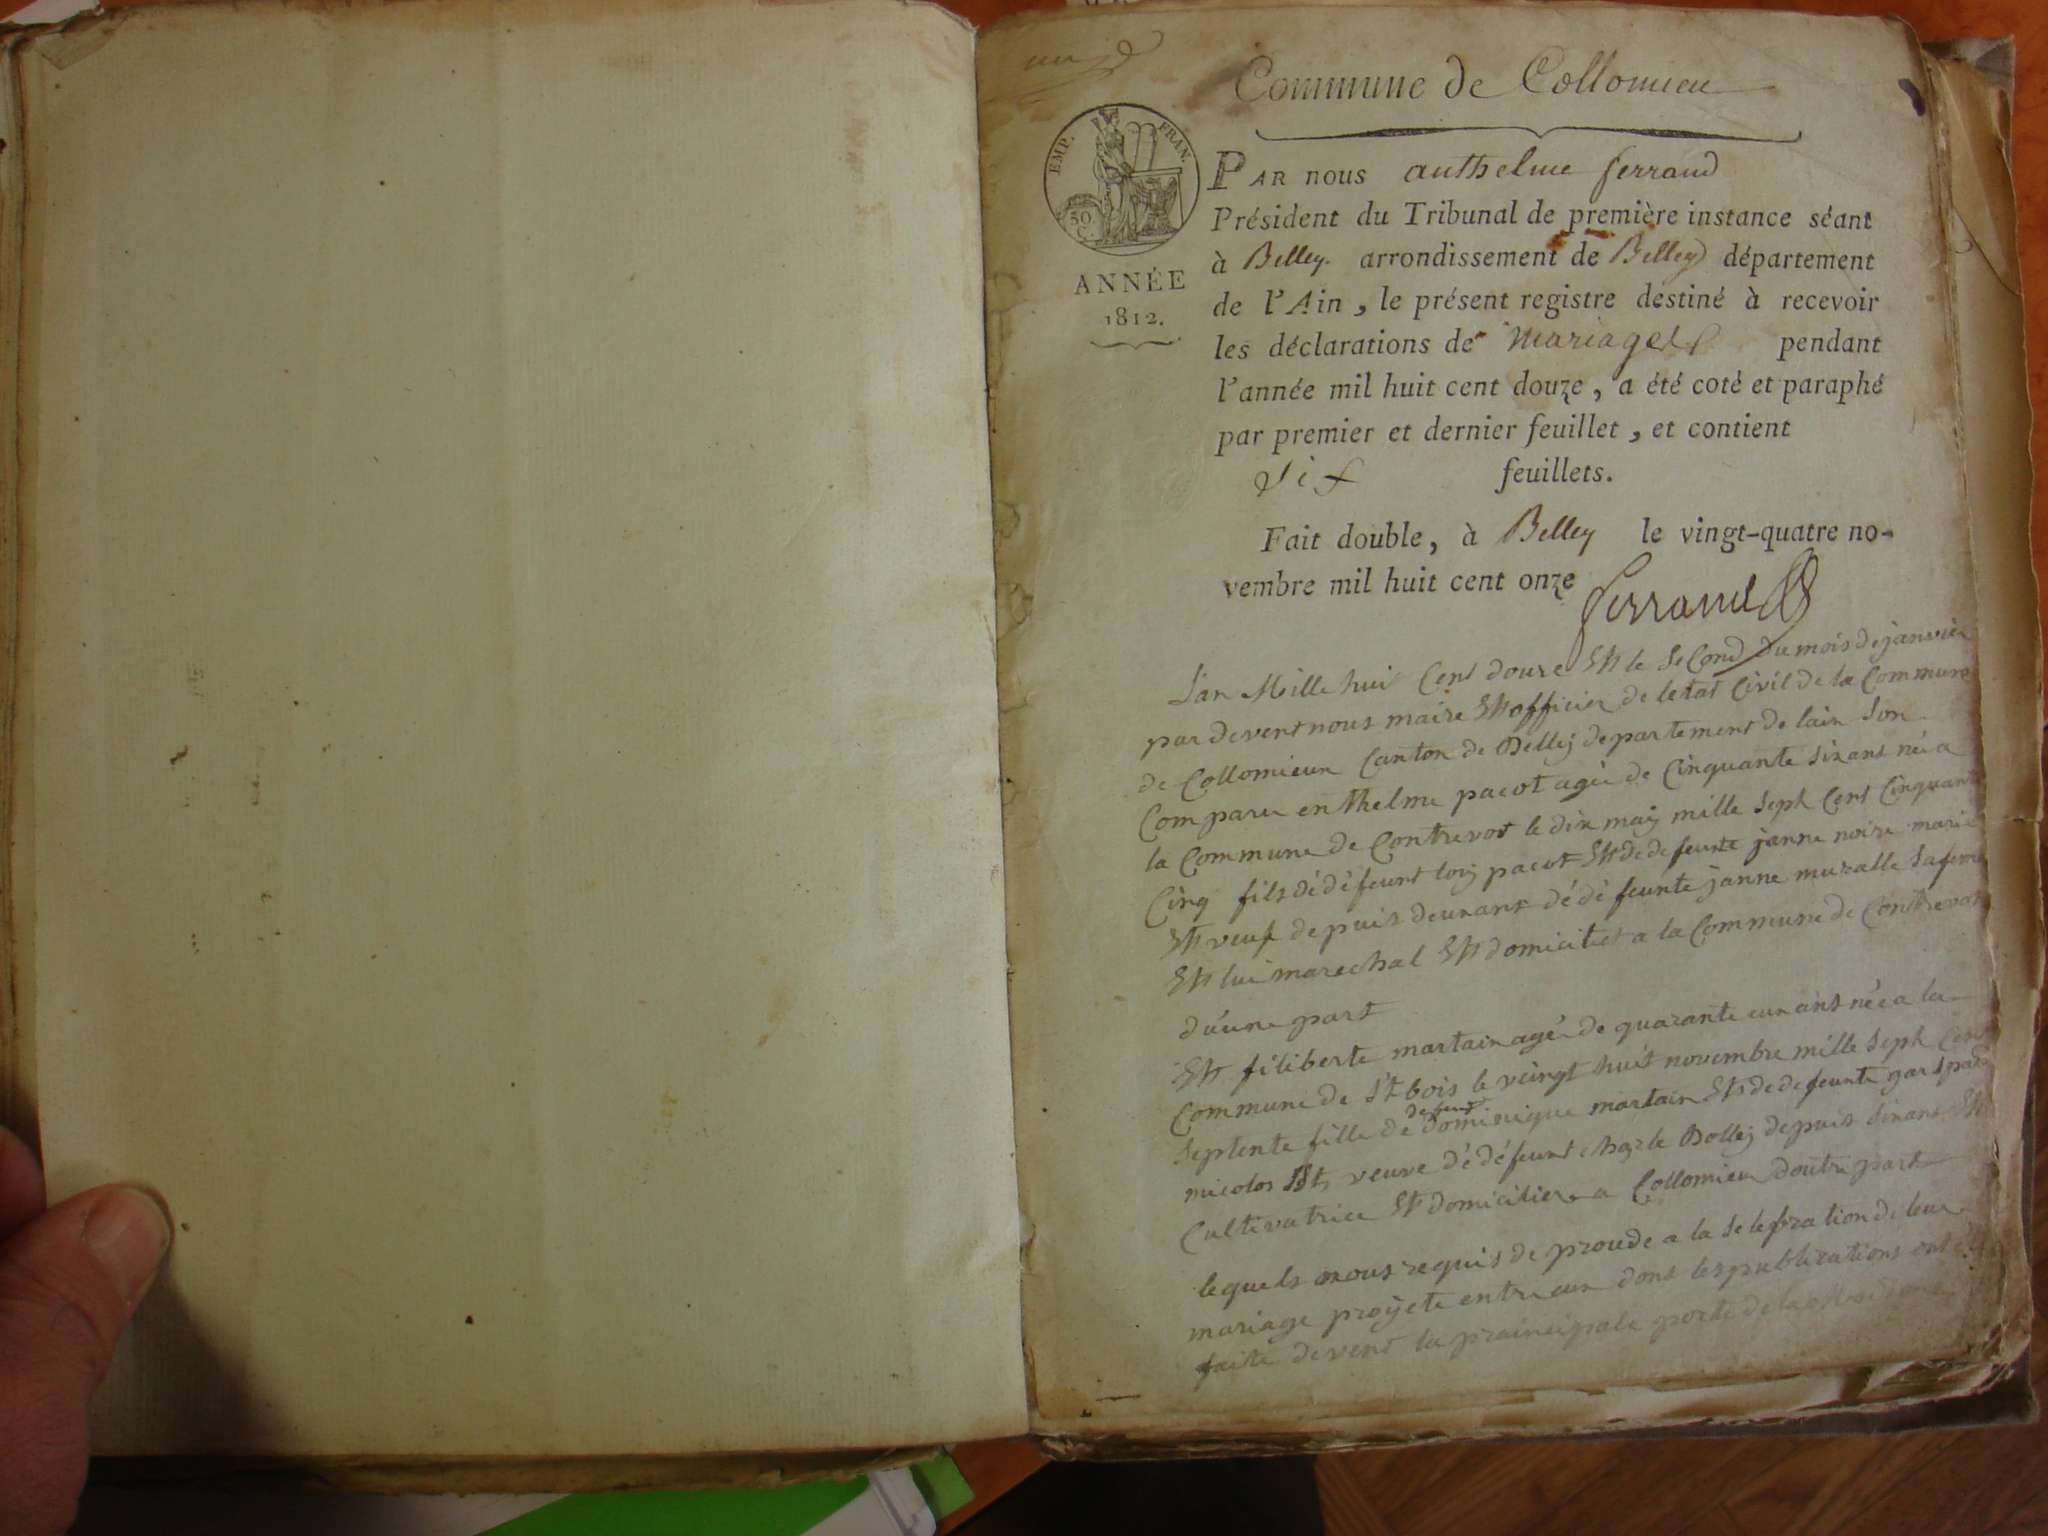 un
Commune de Collomieu
EMP. FRAN.
50 C.
ANNÉE
1812.
PAR nous authelme ferrand
Président du Tribunal de première instance séant
à Belley. arrondissement de Belley département
de l'Ain, le présent registre destiné à recevoir
les déclarations de mariages pendant
l'année mil huit cent douze, a été coté et paraphé
par premier et dernier feuillet, et contient
Six feuillets.
Fait double, à Belley le vingt-quatre no-
vembre mil huit cent onze
ferrand
L'an Mille huit Cent douze Ett le Second du mois de janvier
par devent nous maire Ett officier de letat Civil de la Commune
de Collomieux Canton de Belley departement de lain Son
Comparu enthelme pacot agée de Cinquante Six ans née a
la Commune de Contrevot le dix may mille Sept Cent Cinquante
Cinq fils dé défeunt loiy pacot Ett de defeunte janne noire marie
Ett veuf depuis deux ans dé dé feunte janne muralle Safeme
Ett lui marechal Ett domicilier a la Commune de Contrevot
d'une part
Ett filiberte martain agé de quarante eun ans née a la
Commune de St bois le veingt huit novembre mille Sept Cent
Septente fille de defeunt dominique martain Ett de defeunte
nicolos Ett veuve dé défeunt charle Bolley depuis Six ans Ett
Cultivatrice Ett domicilier a Collomieu doutre part
lequels nous requis de proude a la Selebration de leur
mariage proyete entre eux dont les publications ont été
faite devent la praincipale porte de la